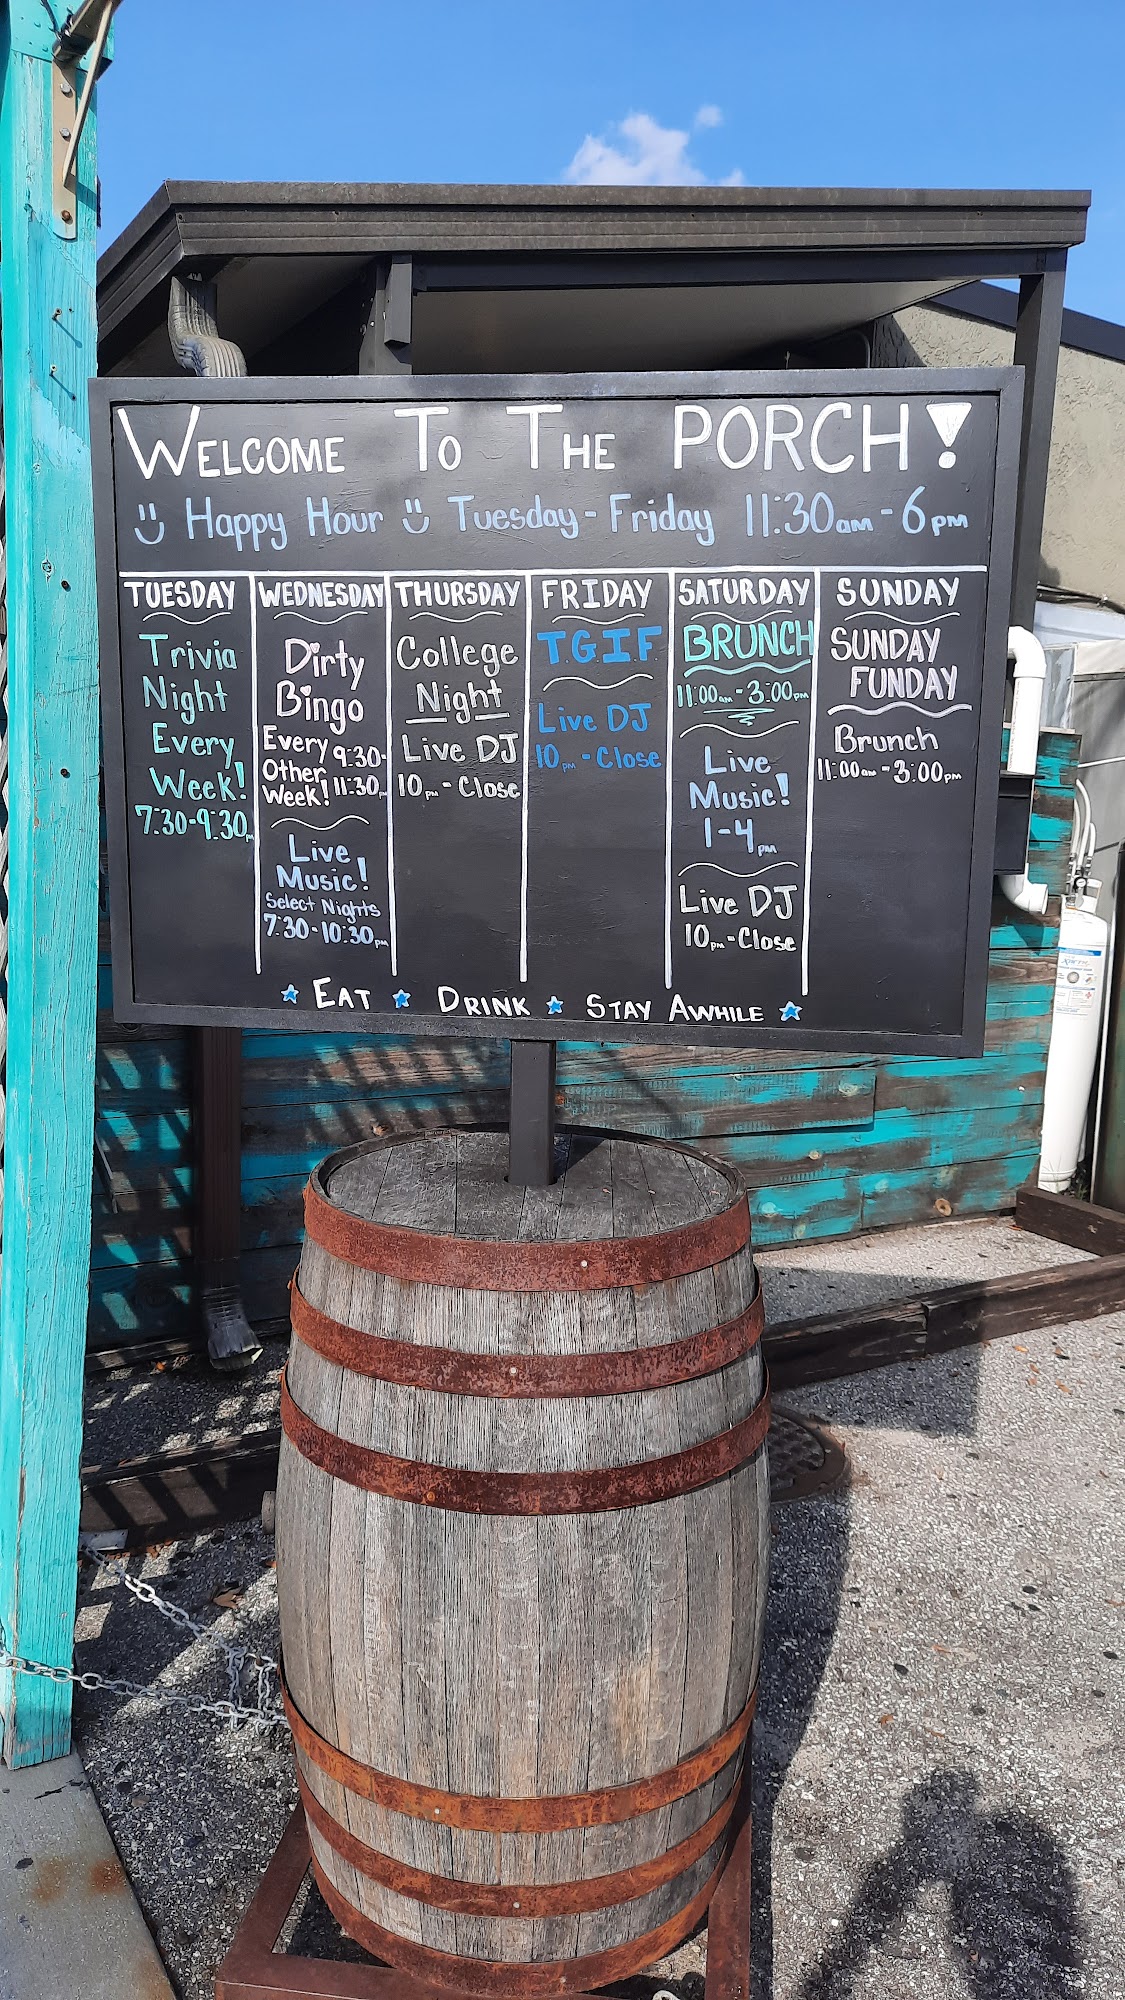 WELCOME TO THE PORCH!
Happy Hour Tuesday - Friday 11:30am - 6pm
TUESDAY
Trivia
Night
Every
Week!
7:30-9:30pm
WEDNESDAY
Dirty
Bingo
Every
Other
Week!
9:30-
11:30pm
Live
Music!
Select Nights
7:30-10:30pm
THURSDAY
College
Night
Live DJ
10pm - Close
FRIDAY
T.G.I.F.
Live DJ
10pm - Close
SATURDAY
BRUNCH
11:00am - 3:00pm
Live
Music!
1-4pm
Live DJ
10pm - Close
SUNDAY
SUNDAY
FUNDAY
Brunch
11:00am - 3:00pm
EAT DRINK STAY AWHILE